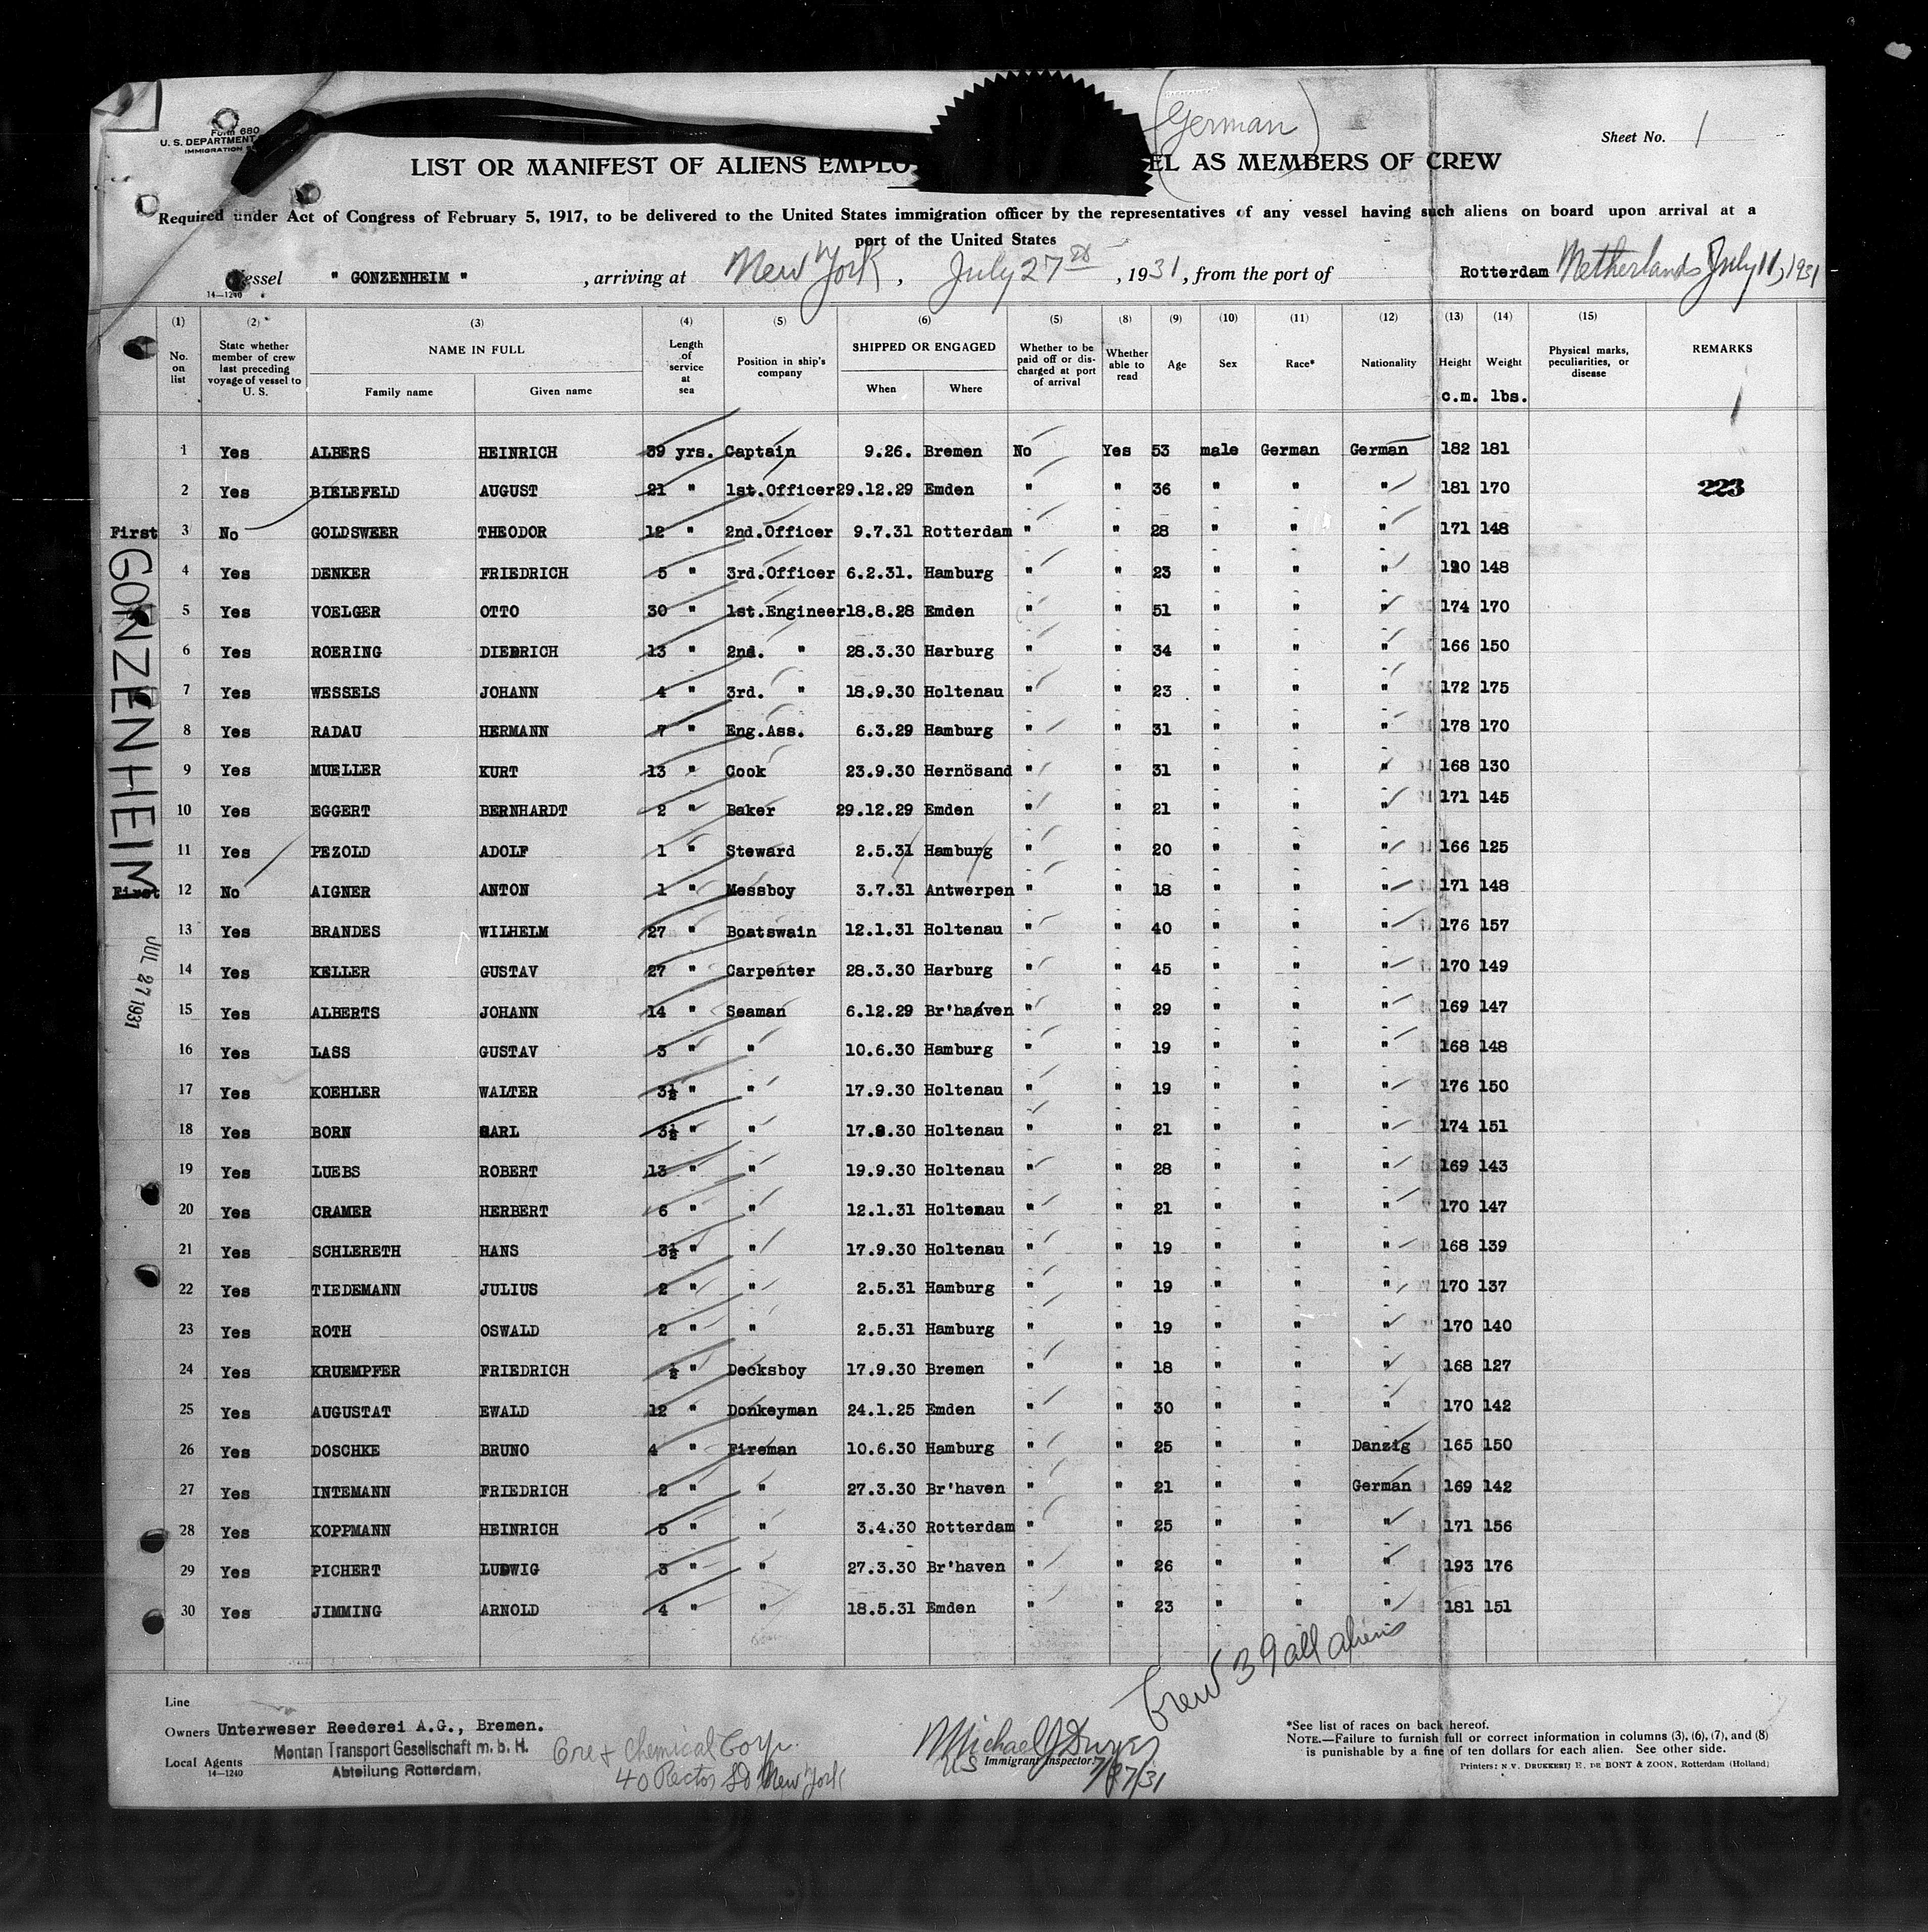 (German)
Form 680
U. S. DEPARTMENT
IMMIGRATION
Sheet No. 1
LIST OR MANIFEST OF ALIENS EMPLO EL AS MEMBERS OF CREW
Required under Act of Congress of February 5, 1917, to be delivered to the United States immigration officer by the representatives of any vessel having such aliens on board upon arrival at a
port of the United States
Vessel " GONZENHEIM " , arriving at New York , July 27th , 1931, from the port of Rotterdam Netherlands July 11, 1931
14—1240
(1) (2) (3) (4) (5) (6) (5) (8) (9) (10) (11) (12) (13) (14) (15)
No. on list State whether member of crew last preceding voyage of vessel to U. S. NAME IN FULL Length of service at sea Position in ship's company SHIPPED OR ENGAGED Whether to be paid off or discharged at port of arrival Whether able to read Age Sex Race* Nationality Height Weight Physical marks, peculiarities, or disease REMARKS
Family name Given name When Where c.m. lbs.
1 Yes ALBERS HEINRICH 39 yrs. Captain 9.26. Bremen No Yes 53 male German German 182 181
2 Yes BIELEFELD AUGUST 21 " 1st.Officer 29.12.29 Emden " " 36 " " " 181 170 223
First 3 No GOLDSWEER THEODOR 12 " 2nd.Officer 9.7.31 Rotterdam " " 28 " " " 171 148
4 Yes DENKER FRIEDRICH 5 " 3rd.Officer 6.2.31. Hamburg " " 23 " " " 148
5 Yes VOELGER OTTO 30 " 1st.Engineer 18.8.28 Emden " " 51 " " " 174 170
6 Yes ROERING DIEDRICH 13 " 2nd. " 28.3.30 Harburg " " 34 " " " 166 150
7 Yes WESSELS JOHANN 4 " 3rd. " 18.9.30 Holtenau " " 23 " " " 172 175
8 Yes RADAU HERMANN 7 " Eng.Ass. 6.3.29 Hamburg " " 31 " " " 178 170
9 Yes MUELLER KURT 13 " Cook 23.9.30 Hernösand " " 31 " " " 168 130
10 Yes EGGERT BERNHARDT 2 " Baker 29.12.29 Emden " " 21 " " " 171 145
11 Yes PEZOLD ADOLF 1 " Steward 2.5.31 Hamburg " " 20 " " " 166 125
First 12 No AIGNER ANTON 1 " Messboy 3.7.31 Antwerpen " " 18 " " " 171 148
13 Yes BRANDES WILHELM 27 " Boatswain 12.1.31 Holtenau " " 40 " " " 176 157
14 Yes KELLER GUSTAV 27 " Carpenter 28.3.30 Harburg " " 45 " " " 170 149
15 Yes ALBERTS JOHANN 14 " Seaman 6.12.29 Br'haaven " " 29 " " " 169 147
16 Yes LASS GUSTAV 3 " " 10.6.30 Hamburg " " 19 " " " 168 148
17 Yes KOEHLER WALTER 3½ " " 17.9.30 Holtenau " " 19 " " " 176 150
18 Yes BORN KARL 3½ " " 17.9.30 Holtenau " " 21 " " " 174 151
19 Yes LUEBS ROBERT 13 " " 19.9.30 Holtenau " " 28 " " " 169 143
20 Yes CRAMER HERBERT 6 " " 12.1.31 Holtenau " " 21 " " " 170 147
21 Yes SCHLERETH HANS 3½ " " 17.9.30 Holtenau " " 19 " " " 168 139
22 Yes TIEDEMANN JULIUS 2 " " 2.5.31 Hamburg " " 19 " " " 170 137
23 Yes ROTH OSWALD 2 " " 2.5.31 Hamburg " " 19 " " " 170 140
24 Yes KRUEMPFER FRIEDRICH ½ " Decksboy 17.9.30 Bremen " " 18 " " " 168 127
25 Yes AUGUSTAT EWALD 12 " Donkeyman 24.1.25 Emden " " 30 " " " 170 142
26 Yes DOSCHKE BRUNO 4 " Fireman 10.6.30 Hamburg " " 25 " " Danzig 165 150
27 Yes INTEMANN FRIEDRICH 2 " " 27.3.30 Br'haven " " 21 " " German 169 142
28 Yes KOPPMANN HEINRICH 5 " " 3.4.30 Rotterdam " " 25 " " " 171 156
29 Yes PICHERT LUDWIG 3 " " 27.3.30 Br'haven " " 26 " " " 193 176
30 Yes JIMMING ARNOLD 4 " " 18.5.31 Emden " " 23 " " " 181 151
GONZENHEIM
JUL 27 1931
Crew 39 all aliens
Line
Owners Unterweser Reederei A.G., Bremen.
Local Agents Montan Transport Gesellschaft m. b. H.
Abteilung Rotterdam.
14—1240
Ore & Chemical Corp.
40 Rector St New York
Michael J
US Immigrant Inspector.
7/27/31
*See list of races on back hereof.
NOTE.—Failure to furnish full or correct information in columns (3), (6), (7), and (8)
is punishable by a fine of ten dollars for each alien. See other side.
Printers: N.V. DRUKKERIJ E. DE BONT & ZOON, Rotterdam (Holland)